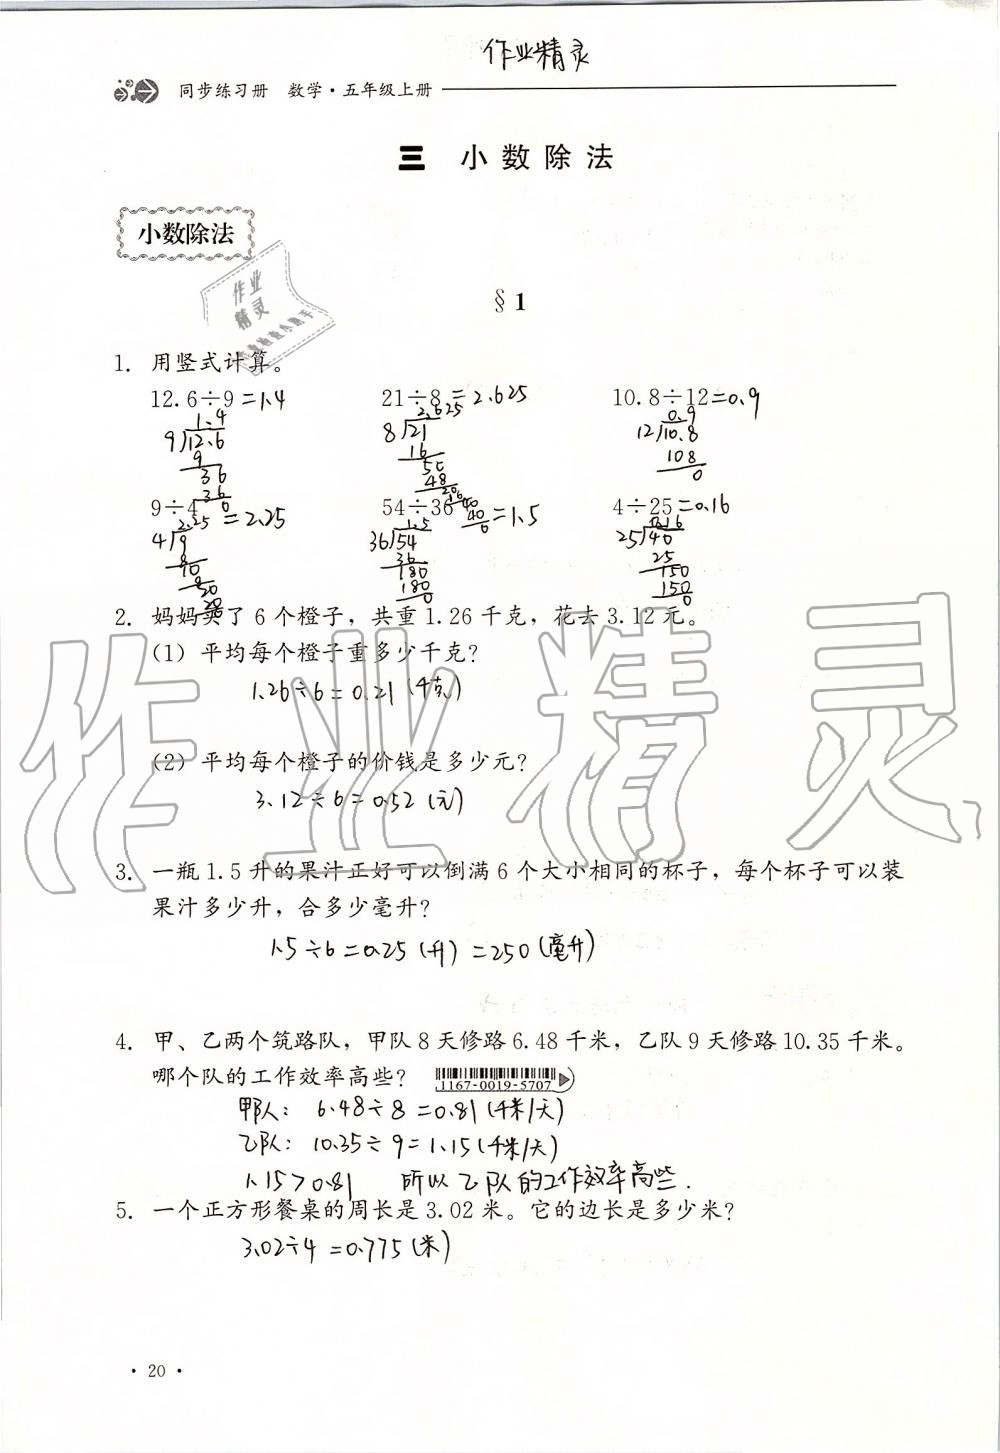 作业精灵
同步练习册 数学·五年级上册
三 小数除法
小数除法
作业
精灵
§1
1. 用竖式计算。
12.6÷9=1.4 21÷8=2.625 10.8÷12=0.9
1.4 2.625 0.9
9 12.6 8 21 12 10.8
9 16 108
36 50 0
36 48
0 20
16
40
40
0
9÷4=2.25 54÷36=1.5 4÷25=0.16
2.25 1.5 0.16
4 9 36 54 25 40
8 36 25
10 180 150
8 180 150
20 0 0
20
2. 妈妈买了 6 个橙子，共重 1.26 千克，花去 3.12 元。
(1) 平均每个橙子重多少千克？
1.26÷6=0.21(千克)
(2) 平均每个橙子的价钱是多少元？
3.12÷6=0.52(元)
3. 一瓶 1.5 升的果汁正好可以倒满 6 个大小相同的杯子，每个杯子可以装
果汁多少升，合多少毫升？
1.5÷6=0.25(升)=250(毫升)
4. 甲、乙两个筑路队，甲队 8 天修路 6.48 千米，乙队 9 天修路 10.35 千米。
哪个队的工作效率高些？ 1167-0019-5707
甲队： 6.48÷8=0.81(千米/天)
乙队： 10.35÷9=1.15(千米/天)
1.15>0.81 所以乙队的工作效率高些.
5. 一个正方形餐桌的周长是 3.02 米。它的边长是多少米？
3.02÷4=0.775(米)
· 20 ·
作业精灵